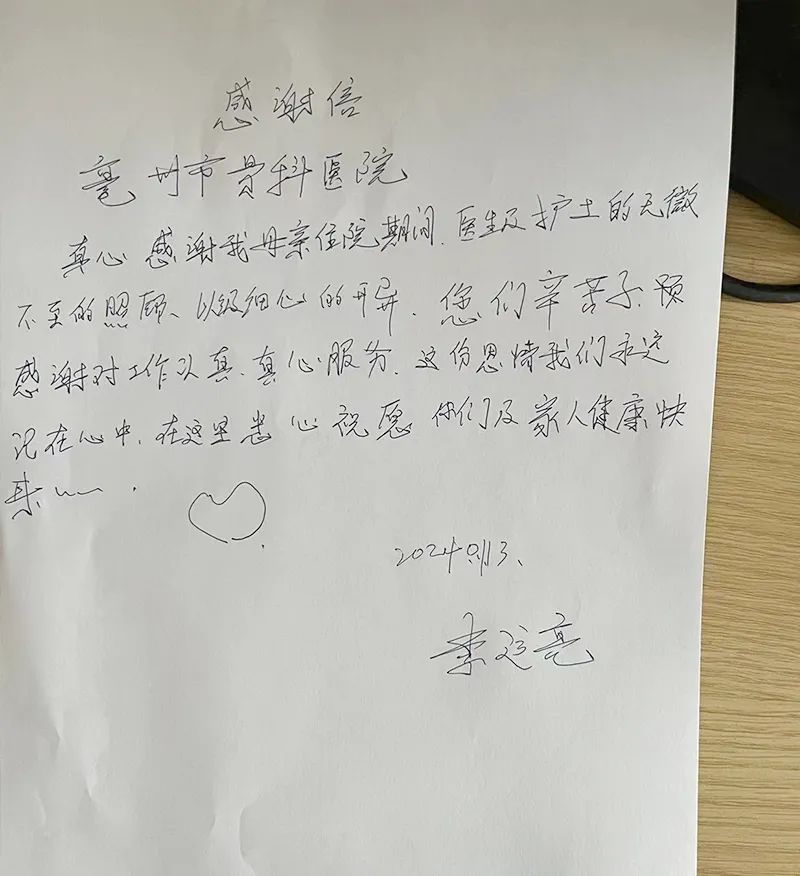 感谢信
亳州市骨科医院
真心感谢我母亲住院期间.医生及护士的无微
不至的照顾、以级细心的开导.您们辛苦了.
感谢对工作认真、真心服务.这份恩情我们永远
记在心中.在这里忠心祝愿你们及家人健康快
乐
2024.
李运亮